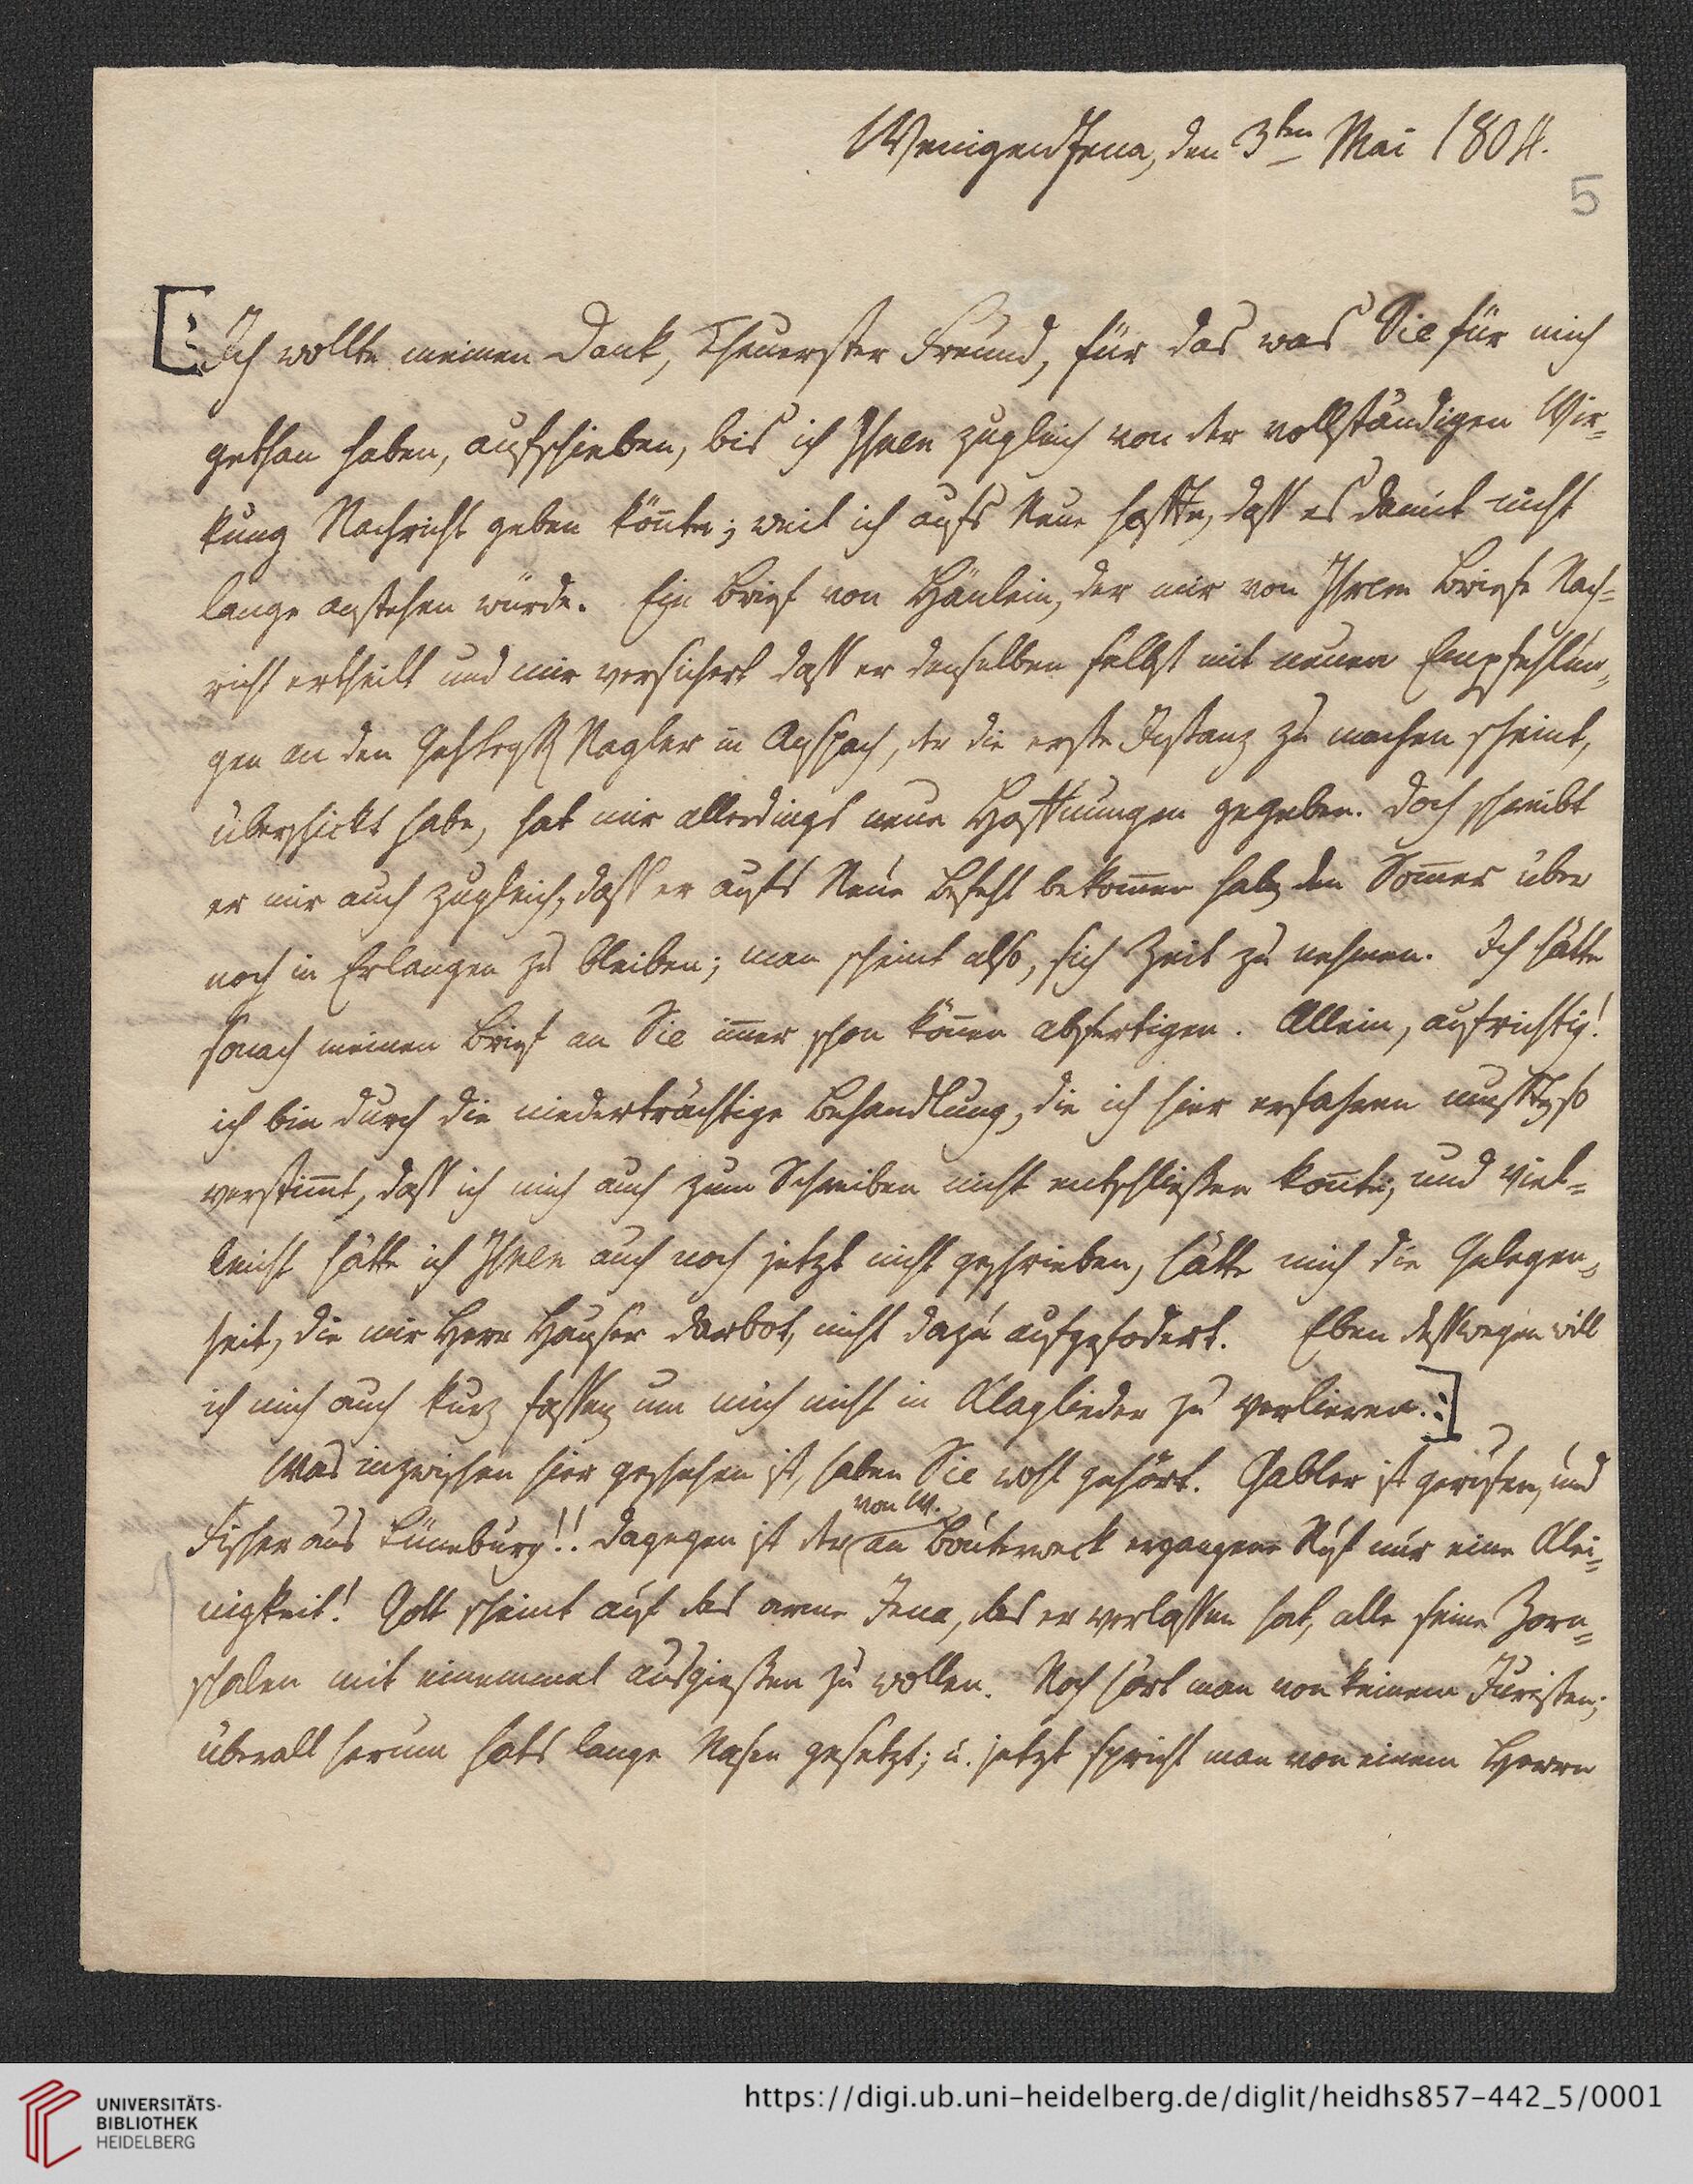 WenigenJena, den 3ten Mai 1804.
5
[: Ich wollte meinen Dank, Theuerster Freund, für das was Sie für mich
gethan haben, aufschieben, bis ich Ihnen zugleich von der vollständigen Wir=
kung Nachricht geben könnte; weil ich aufs Neue hoffte, dass es damit nicht
lange anstehen würde. Ein Brief von Hänlein, der mir von Ihrem Briefe Nach=
richt ertheilt und mir versichert dass er denselben selbst mit neuen Empfehlun=
gen an den Nagler in Anspach, der die erste Instanz zu machen scheint,
überschickt habe, hat mir allerdings neue Hoffnungen gegeben. Doch schreibt
er mir auch zugleich, dass er aufs Neue Befehl bekom̅en habe, den Som̅er über
noch in Erlangen zu bleiben; man scheint also, sich Zeit zu nehmen. Ich hätte
sonach meinen Brief an Sie im̅er schon kön̅en abfertigen. Allein, aufrichtig!
ich bin durch die niederträchtige Behandlung, die ich hier erfahren musste, so
verstim̅t, dass ich mich auch zum Schreiben nicht entschließen kon̅te; und viel=
leicht hätte ich Ihnen auch noch jetzt nicht geschrieben, hätte mich die Gelegen=
heit, die mir Herr Hauser darbot, nicht dazu aufgefodert. Eben desswegen will
ich mich auch kurz fassen, um mich nicht in Klaglieder zu verlieren. :]
Was inzwischen hier geschehen ist, haben Sie wohl gehört. Gabler ist gerufen, und
von W.
Fischer aus Lüneburg!! Dagegen ist der an Bouterweck ergangene Ruf nur eine Klei=
nigkeit! Gott scheint auf das arme Jena, das er verlassen hat, alle seine Zorn=
schalen mit einemmal ausgießen zu wollen. Noch hört man von keinem Juristen;
überall herum hats lange Nasen gesetzt; u. jetzt spricht man von einem Herrn
UNIVERSITÄTS-
BIBLIOTHEK
HEIDELBERG
https://digi.ub.uni-heidelberg.de/diglit/heidhs857-442_5/0001